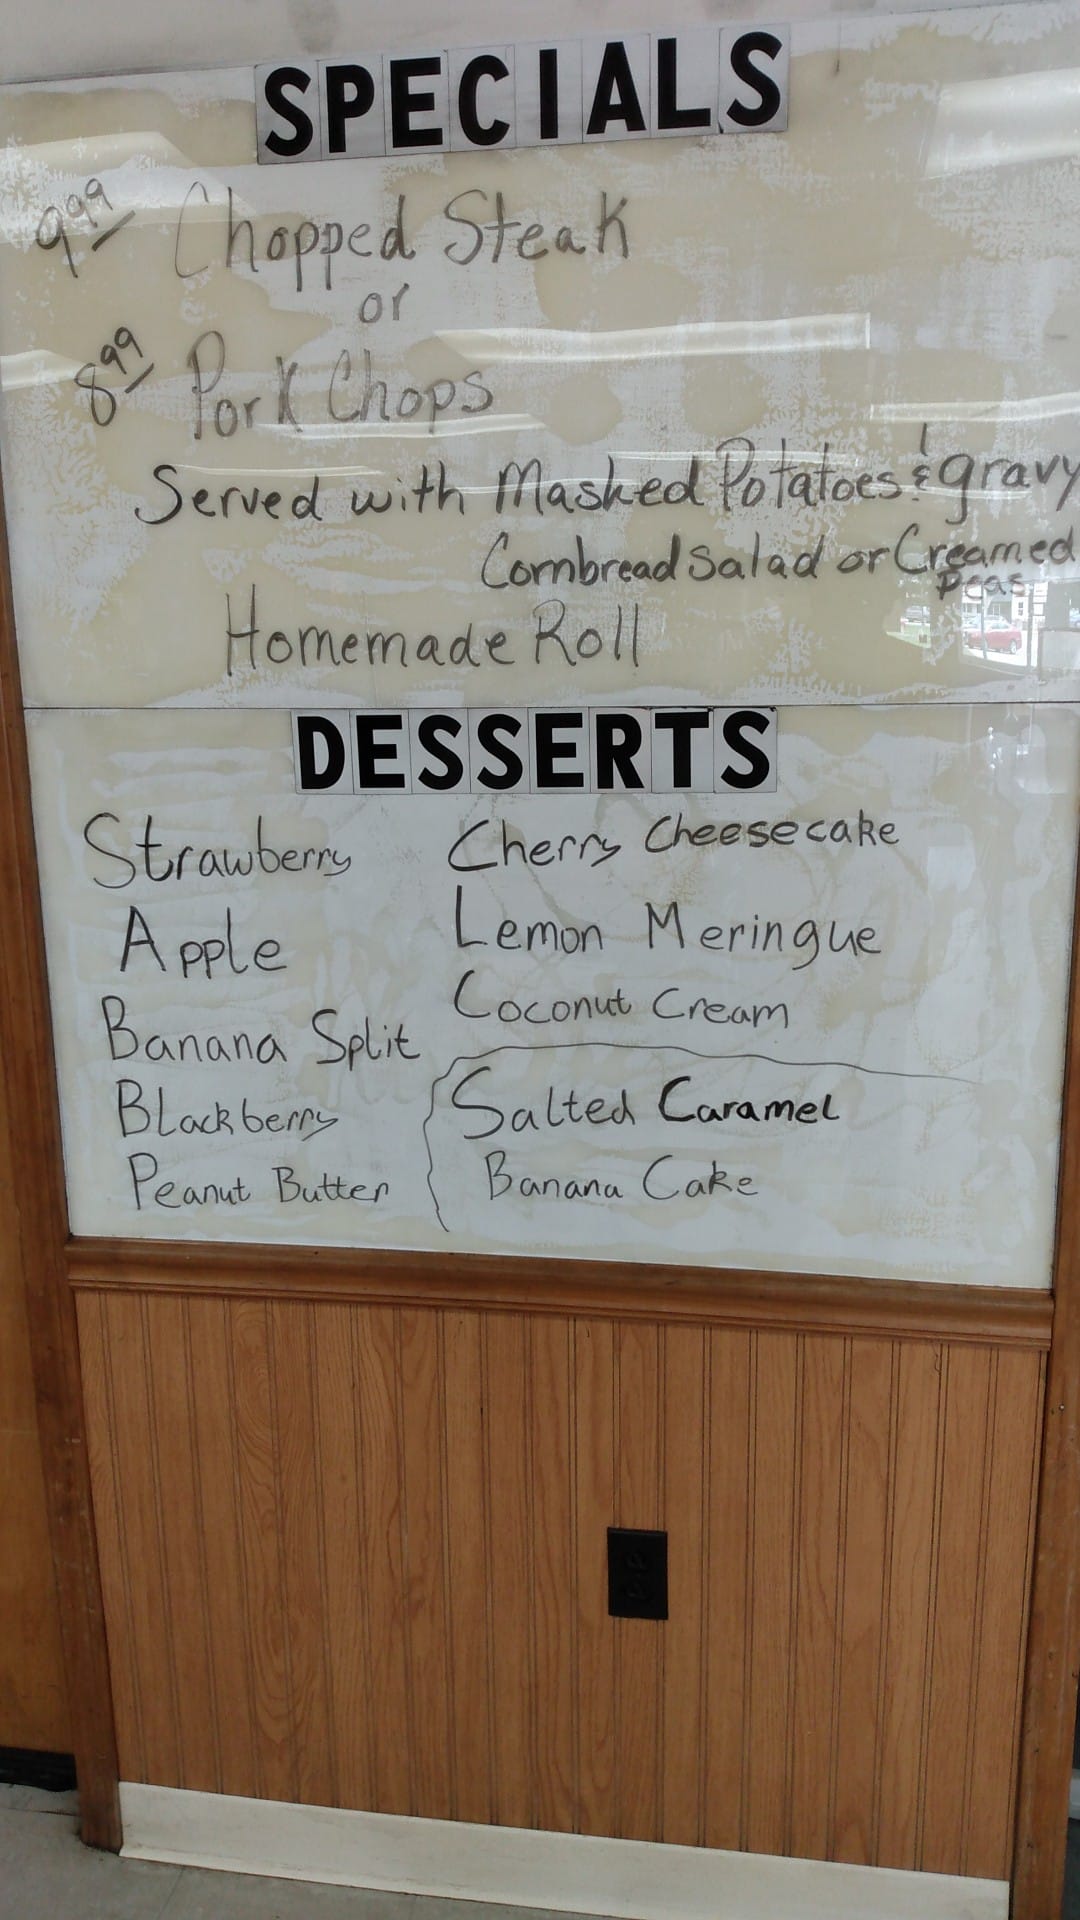 SPECIALS
9.99 Chopped Steak
or
8.99 Pork Chops
Served with Mashed Potatoes & gravy
Cornbread Salad or Creamed
Peas
Homemade Roll
DESSERTS
Strawberry
Apple
Banana Split
Blackberry
Peanut Butter
Cherry Cheesecake
Lemon Meringue
Coconut Cream
Salted Caramel
Banana Cake